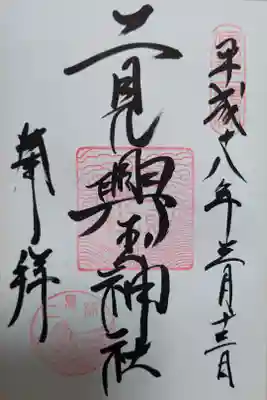 平成十八年三月十三日
二見興玉神社
奉拝